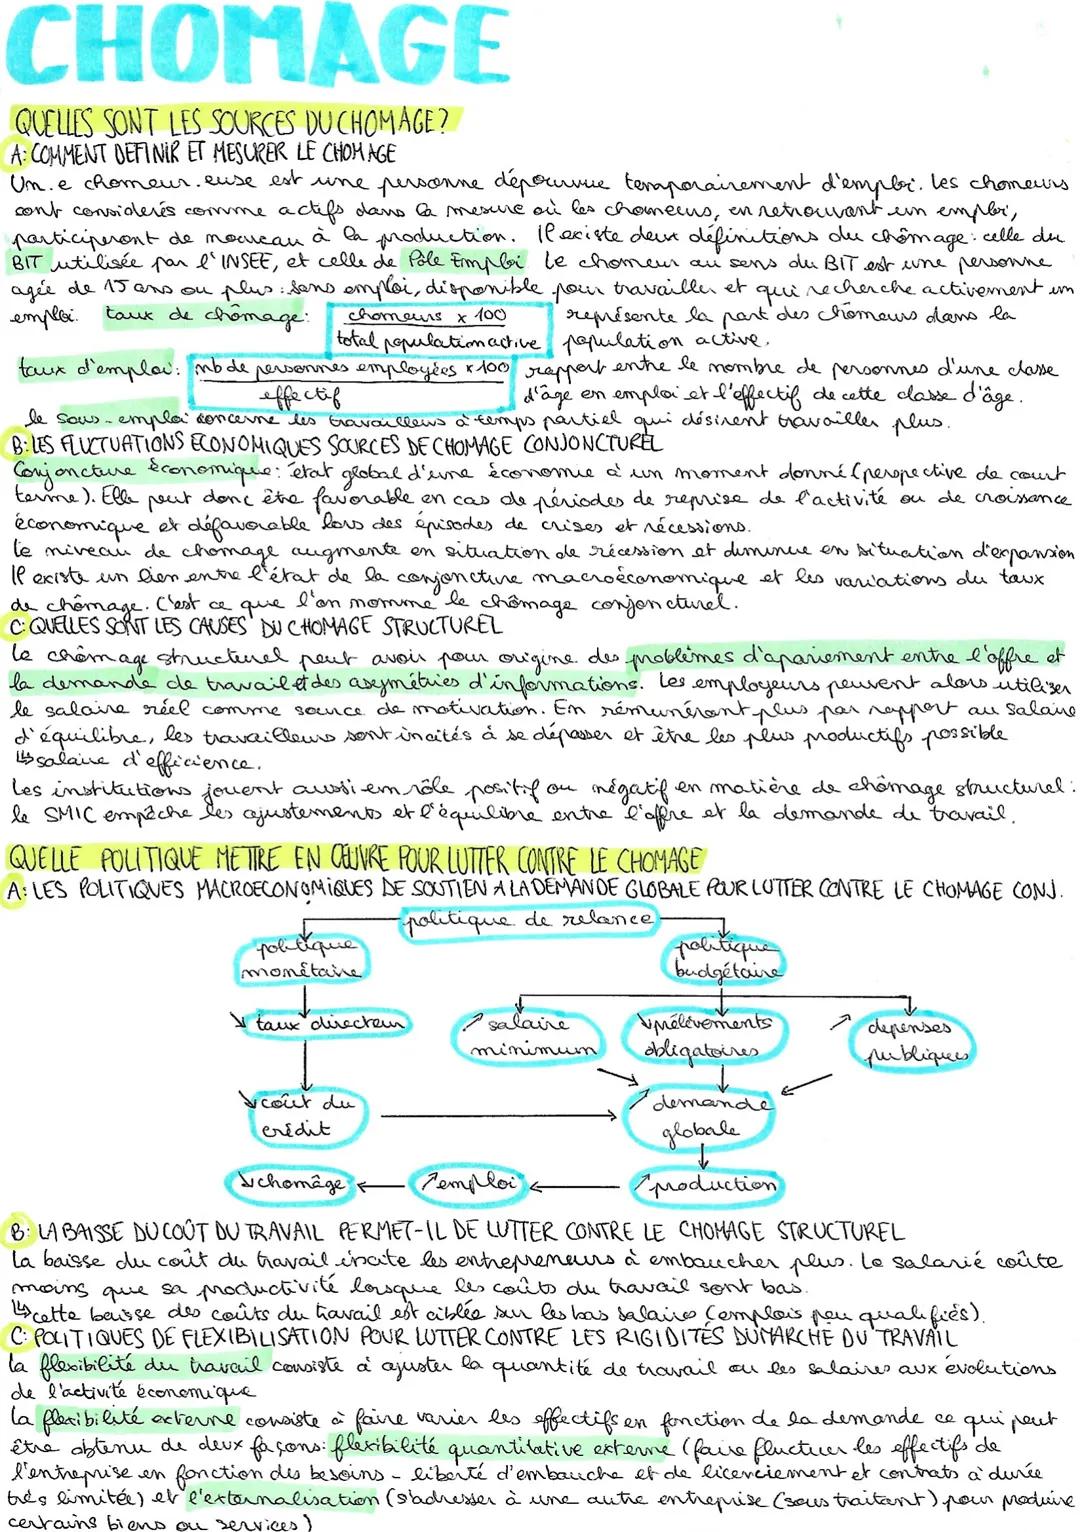 CHOMAGE
QUELLES SONT LES SOURCES DU CHOMAGE?
A: COMMENT DEFINIR ET MESURER LE CHOMAGE
Un.e chomeur.euse est une personne dépourvue temporairement d'emploi. Les chomeurs
sont considerés comme actifs dans la mesure où les chomeurs, en retrouvant un emploi,
participeront de nouveau à la production. Il existe deux définitions du chômage: celle du
BIT utilisée par l'INSEE, et celle de Pôle Emploi. Le chomeur au sens du BIT est une personne
agée de 15 ans ou plus: sans emploi, disponible pour travailler et qui recherche activement un
emploi. taux de chômage: chomeurs x 100 représente la part des chômeurs dans la
total population active population active.
taux d'emploi: nb de personnes employées x 100 rapport entre le nombre de personnes d'une classe
effectif d'âge en emploi et l'effectif de cette classe d'âge.
le sous-emploi concerne les travailleurs à temps partiel qui désirent travailler plus.
B: LES FLUCTUATIONS ECONOMIQUES SOURCES DE CHOMAGE CONJONCTUREL
Conjoncture économique: état global d'une économie à un moment donné (perspective de court
terme). Elle peut donc être favorable en cas de périodes de reprise de l'activité ou de croissance
économique et défavorable lors des épisodes de crises et récessions.
Le niveau de chomage augmente en situation de récession et diminue en situation d'expansion
Il existe un lien entre l'état de la conjoncture macroéconomique et les variations du taux
de chômage. C'est ce que l'on nomme le chômage conjoncturel.
C: QUELLES SONT LES CAUSES DU CHOMAGE STRUCTUREL
Le chômage structurel peut avoir pour origine des problèmes d'apariement entre l'offre et
la demande de travail et des asymétries d'informations. Les employeurs peuvent alors utiliser
le salaire réel comme source de motivation. En rémunéront plus par rapport au salaire
d'équilibre, les travailleurs sont incités à se dépasser et être les plus productifs possible
↳ salaire d'efficience.
Les institutions jouent aussi em rôle positif ou négatif en matière de chômage structurel:
le SMIC empêche les ajustements et l'équilibre entre l'offre et la demande de travail.
QUELLE POLITIQUE METTRE EN ŒUVRE POUR LUTTER CONTRE LE CHOMAGE
A: LES POLITIQUES MACROECONOMIQUES DE SOUTIEN A LA DEMANDE GLOBALE POUR LUTTER CONTRE LE CHOMAGE CONJ.
politique de relance
politique monétaire
politique budgétaire
↘ taux directeur
↗ salaire minimum
↘ prélèvements obligatoires
↗ depenses publiques
↘ coût du crédit
↗ demande globale
↘ chomâge
↗ emploi
↗ production
B: LA BAISSE DU COÛT DU TRAVAIL PERMET-IL DE LUTTER CONTRE LE CHOMAGE STRUCTUREL
La baisse du coût du travail incite les entrepreneurs à embaucher plus. Le salarié coûte
moins que sa productivité lorsque les coûts du travail sont bas.
↳ cette baisse des coûts du travail est ciblée sur les bas salaires (emplois peu qualifiés).
C: POLITIQUES DE FLEXIBILISATION POUR LUTTER CONTRE LES RIGIDITÉS DU MARCHE DU TRAVAIL
La flexibilité du travail consiste à ajuster la quantité de travail ou les salaires aux évolutions
de l'activité économique
La flexibilité externe consiste à faire varier les effectifs en fonction de la demande ce qui peut
être obtenu de deux façons: flexibilité quantitative externe (faire fluctuer les effectifs de
l'entreprise en fonction des besoins - liberté d'embauche et de licenciement et contrats à durée
très limitée) et l'externalisation (s'adresser à une autre entreprise (sous traitant) pour produire
certains biens ou services)